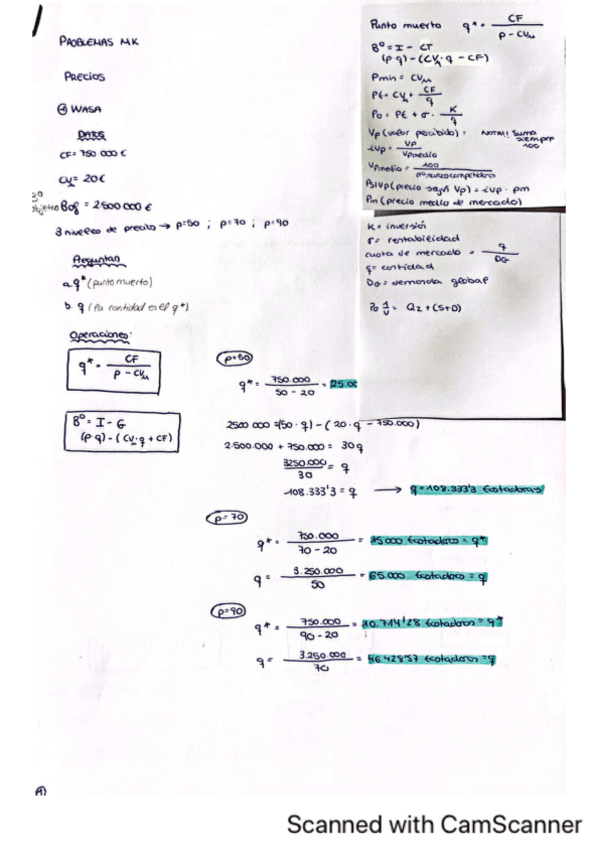 PROBLEMAS MK
PRECIOS
WASA
DATOS
CF= 750 000 €
CV= 20€
Bº obj = 2500 000 €
3 niveles de precio → p=50 ; p=70 ; p=90
Preguntan
a. q* (punto muerto)
b. q (la cantidad en el q*)
Operaciones:
q* = CF / p - CVu
Bº = I - G
(p q) - (CV.q + CF)
Punto muerto q* = CF / p - CVu
Bº = I - CT
(p q) - (CVu. q - CF)
Pmin = CVu
Pt = CVu + CF / q
Po = Pt + σ . K / q
Vp (valor percibido) = NOTA!! Suma siempre 100
iVp = Vp / Vpmedio
Vpmedio = 100 / nº marcas competidoras
PsiVp (precio según Vp) = iVp . pm
Pm (precio medio de mercado)
K = inversión
r = rentabilidad
cuota de mercado = q / DG
q = cantidad
DG = demanda global
p=50
q* = 750.000 / 50 - 20 =
2500 000 = (50 . q) - (20 . q - 750.000)
2.500.000 + 750.000 = 30q
3250.000 / 30 = q
108.333'3 = q → q = 108.333'3 tostadoras
p=70
q* = 750.000 / 70 - 20 = 15000 tostadoras = q*
q = 3.250.000 / 50 = 65.000 tostadoras = q
p=90
q* = 750.000 / 90 - 20 = 10.714'28 tostadoras = q*
q = 3.250.000 / 70 = 46428'57 tostadoras = q
Scanned with CamScanner